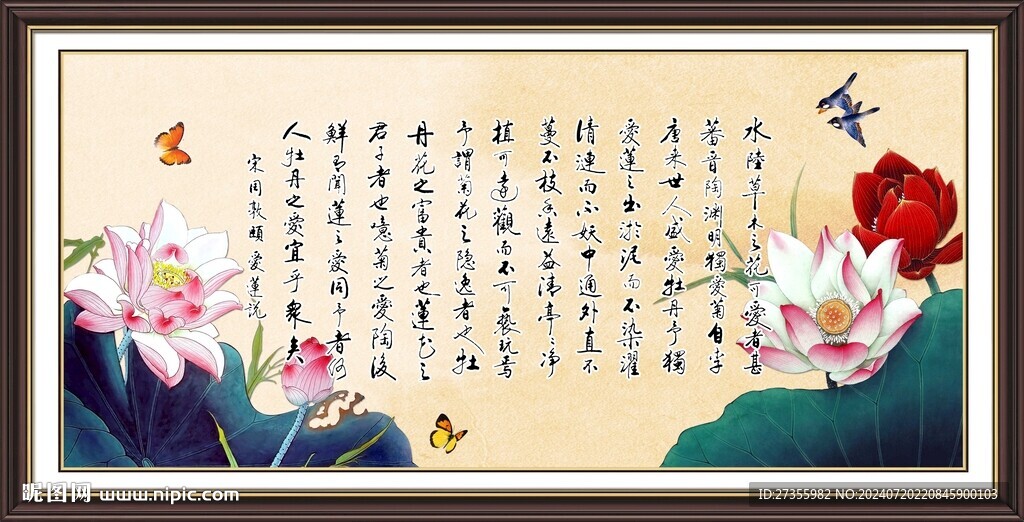 水陸草木之花可愛者甚
蕃晉陶淵明獨愛菊自李
唐来世人盛愛牡丹予獨
愛蓮之出淤泥而不染濯
清漣而不妖中通外直不
蔓不枝香遠益清亭亭净
植可遠觀而不可褻玩焉
予謂菊花之隐逸者也牡
丹花之富貴者也蓮花之
君子者也噫菊之愛陶後
鮮有聞蓮之愛同予者何
人牡丹之愛宜乎衆矣
宋周敦頤愛蓮説
昵图网 www.nipic.com
ID:27355982 NO:20240720220845900103